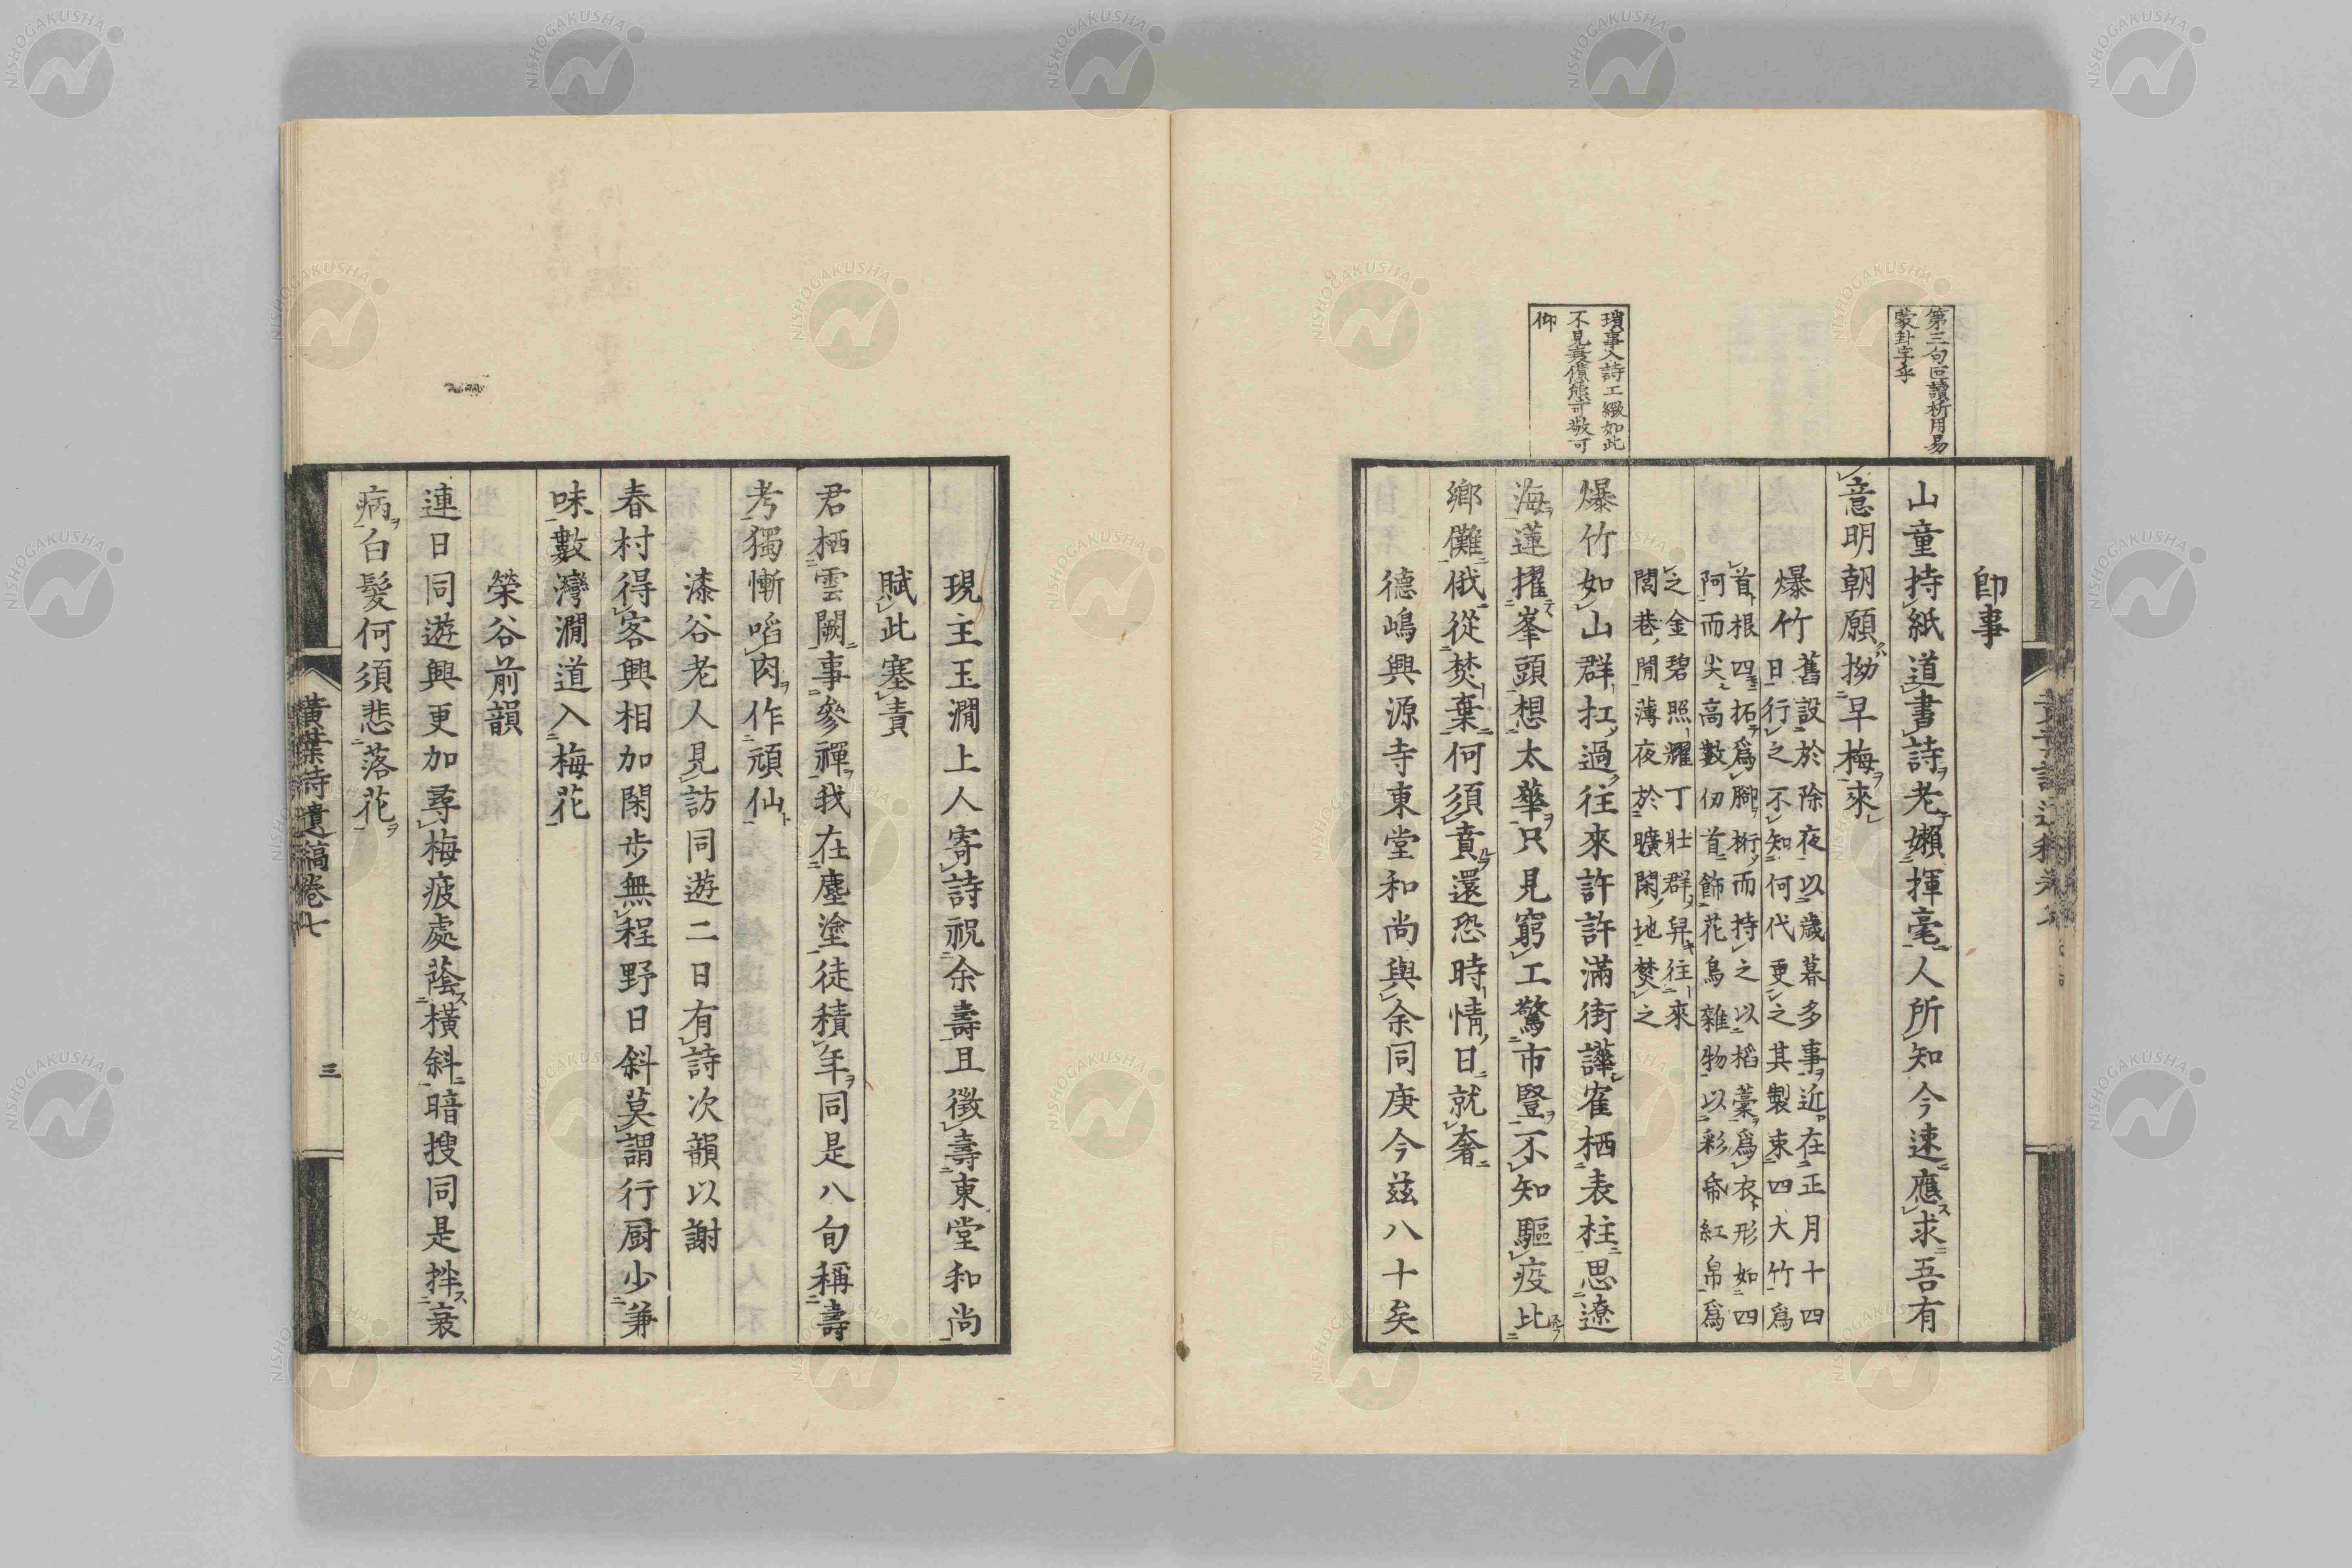 第三句叵讀析用易
蒙卦字乎
瑣事入詩工緻如此
不見衰憊態可敬可
仰
卽事
山童持紙道書詩老嬾揮毫人所知今速應求吾有
意明朝願拗早梅來
爆竹
舊設於除夜以歲暮多事近在正月十四
日行之不知何代更之其製束四大竹爲
首根四拓爲腳桁而持之以稻藁爲衣形如四
阿而尖高數仞首飾花鳥雜物以彩帋紅帛爲
之金碧照耀丁壯群舁往來
閭巷間薄夜於曠閑地焚之
爆竹如山群扛過往來許許滿街譁寉栖表柱思遼
海蓮擢峯頭想太華只見窮工驚市豎不知驅疫比
鄉儺俄從焚棄何須賁還恐時情日就奢
德嶋興源寺東堂和尚與余同庚今茲八十矣
現主玉澗上人寄詩祝余壽且徵壽東堂和尚
賦此塞責
君栖雲闕事參禪我在塵塗徒積年同是八旬稱壽
考獨慚啗肉作頑仙
漆谷老人見訪同遊二日有詩次韻以謝
春村得客興相加閑步無程野日斜莫謂行厨少兼
味數灣澗道入梅花
榮谷前韻
連日同遊興更加尋梅疲處蔭橫斜暗搜同是拌衰
病白髮何須悲落花
黃葉詩遺稿卷七
三
NISHOGAKUSHA